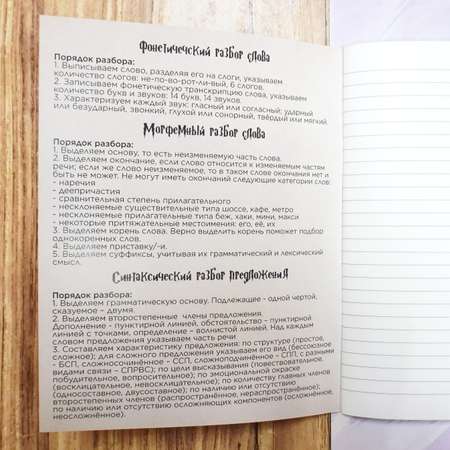 Фонетичечский разбор слова
Порядок разбора:
1. Выписываем слово, разделяя его на слоги, указываем
количество слогов: не-по-во-рот-ли-вый, 6 слогов.
2. Записываем фонетическую транскрипцию слова, указываем
количество букв и звуков: 14 букв, 14 звуков.
3. Характеризуем каждый звук: гласный или согласный; ударный
или безударный, звонкий, глухой или сонорный, твёрдый или мягкий.
Морфемный разбор слова
Порядок разбора:
1. Выделяем основу, то есть неизменяемую часть слова.
2. Выделяем окончание, если слово относится к изменяемым частям
речи; если же слово неизменяемое, то в таком слове окончания нет и
быть не может. Не могут иметь окончаний следующие категории слов:
- наречия
- деепричастия
- сравнительная степень прилагательного
- несклоняемые существительные типа шоссе, кафе, метро
- несклоняемые прилагательные типа беж, хаки, мини, макси
- некоторые притяжательные местоимения: его, её, их
3. Выделяем корень слова. Верно выделить корень поможет подбор
однокоренных слов.
4. Выделяем приставку/-и.
5. Выделяем суффиксы, учитывая их грамматический и лексический
смысл.
Синтаксический разбор предложения
Порядок разбора:
1. Выделяем грамматическую основу. Подлежащее - одной чертой,
сказуемое - двумя.
2. Выделяем второстепенные члены предложения.
Дополнение - пунктирной линией, обстоятельство - пунктирной
линией с точками, определение - волнистой линией. Над каждым
словом предложения указываем часть речи
3. Составляем характеристику предложения: по структуре (простое,
сложное); для сложного предложения указываем его вид (бессоюзное
- БСП, сложносочинённое - ССП, сложноподчинённое - СПП, с разными
видами связи - СПРВС); по цели высказывания (повествовательное,
побудительное, вопросительное); по эмоциональной окраске
(восклицательное, невосклицательное); по количеству главных членов
(односоставное, двусоставное); по наличию или отсутствию
второстепенных членов (распространённое, нераспространённое);
по наличию или отсутствию осложняющих компонентов (осложнённое,
неосложнённое).